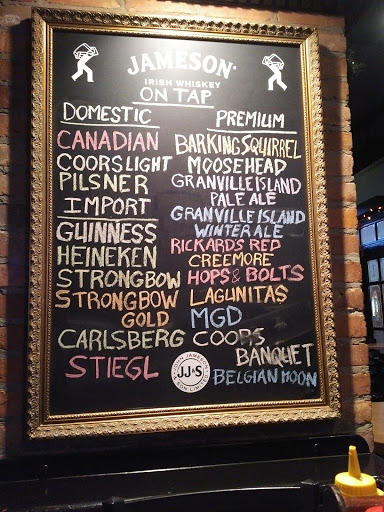 JAMESON
IRISH WHISKEY
ON TAP
DOMESTIC
CANADIAN
COORS LIGHT
PILSNER
IMPORT
GUINNESS
HEINEKEN
STRONGBOW
STRONGBOW
GOLD
CARLSBERG
STIEGL
PREMIUM
BARKING SQUIRREL
MOOSEHEAD
GRANVILLE ISLAND
PALE ALE
GRANVILLE ISLAND
WINTER ALE
RICKARD'S RED
CREEMORE
HOPS & BOLTS
LAGUNITAS
MGD
COORS
BANQUET
BELGIAN MOON
JOHN JAMESON
JJ&S
& SON LIMITED